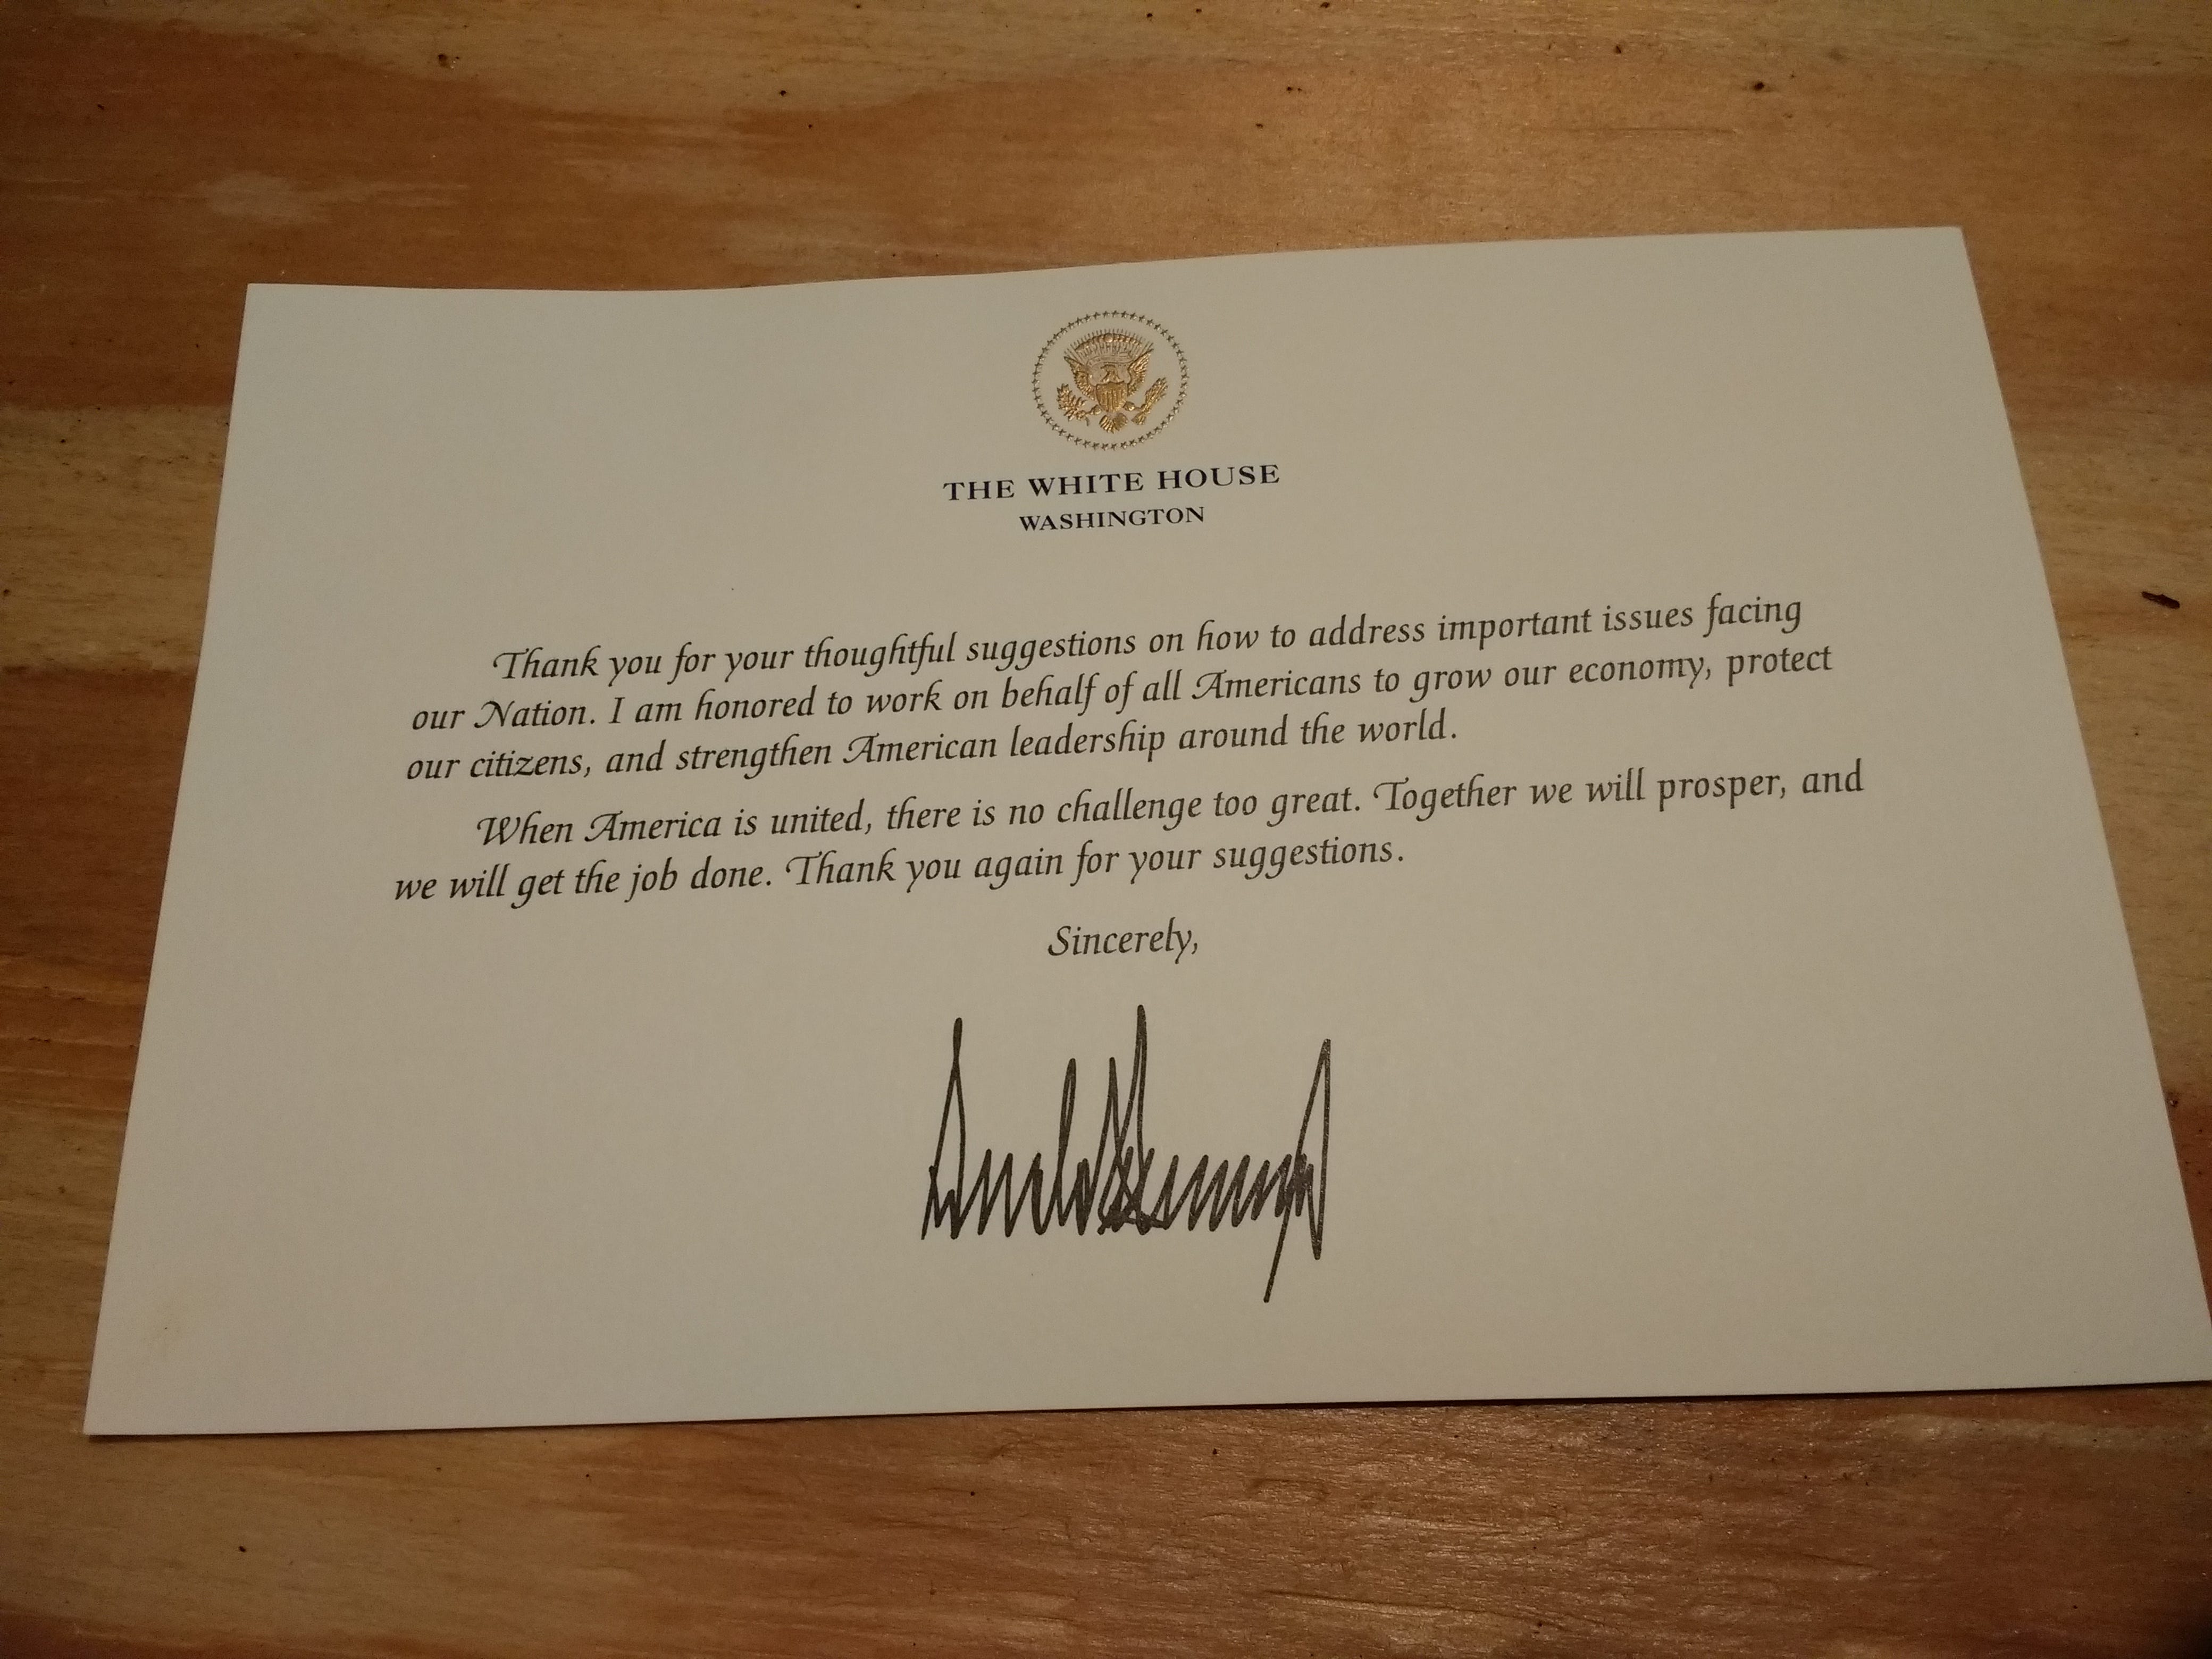 THE WHITE HOUSE
WASHINGTON
Thank you for your thoughtful suggestions on how to address important issues facing
our Nation. I am honored to work on behalf of all Americans to grow our economy, protect
our citizens, and strengthen American leadership around the world.
When America is united, there is no challenge too great. Together we will prosper, and
we will get the job done. Thank you again for your suggestions.
Sincerely,